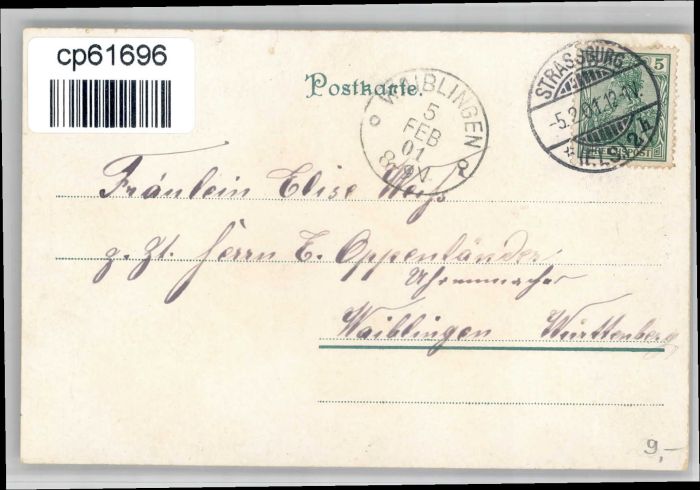 cp61696
Postkarte.
WAIBLINGEN
5
FEB
01
STRASSBURG
-5.2.01.12-1V.
* (ELS.) 2h
5
REICHSPOST
Fräulein Elise Weiß
z. Zt. Herrn E. Oppenländer
Uhrenmacher
Waiblingen Württenberg
9,-